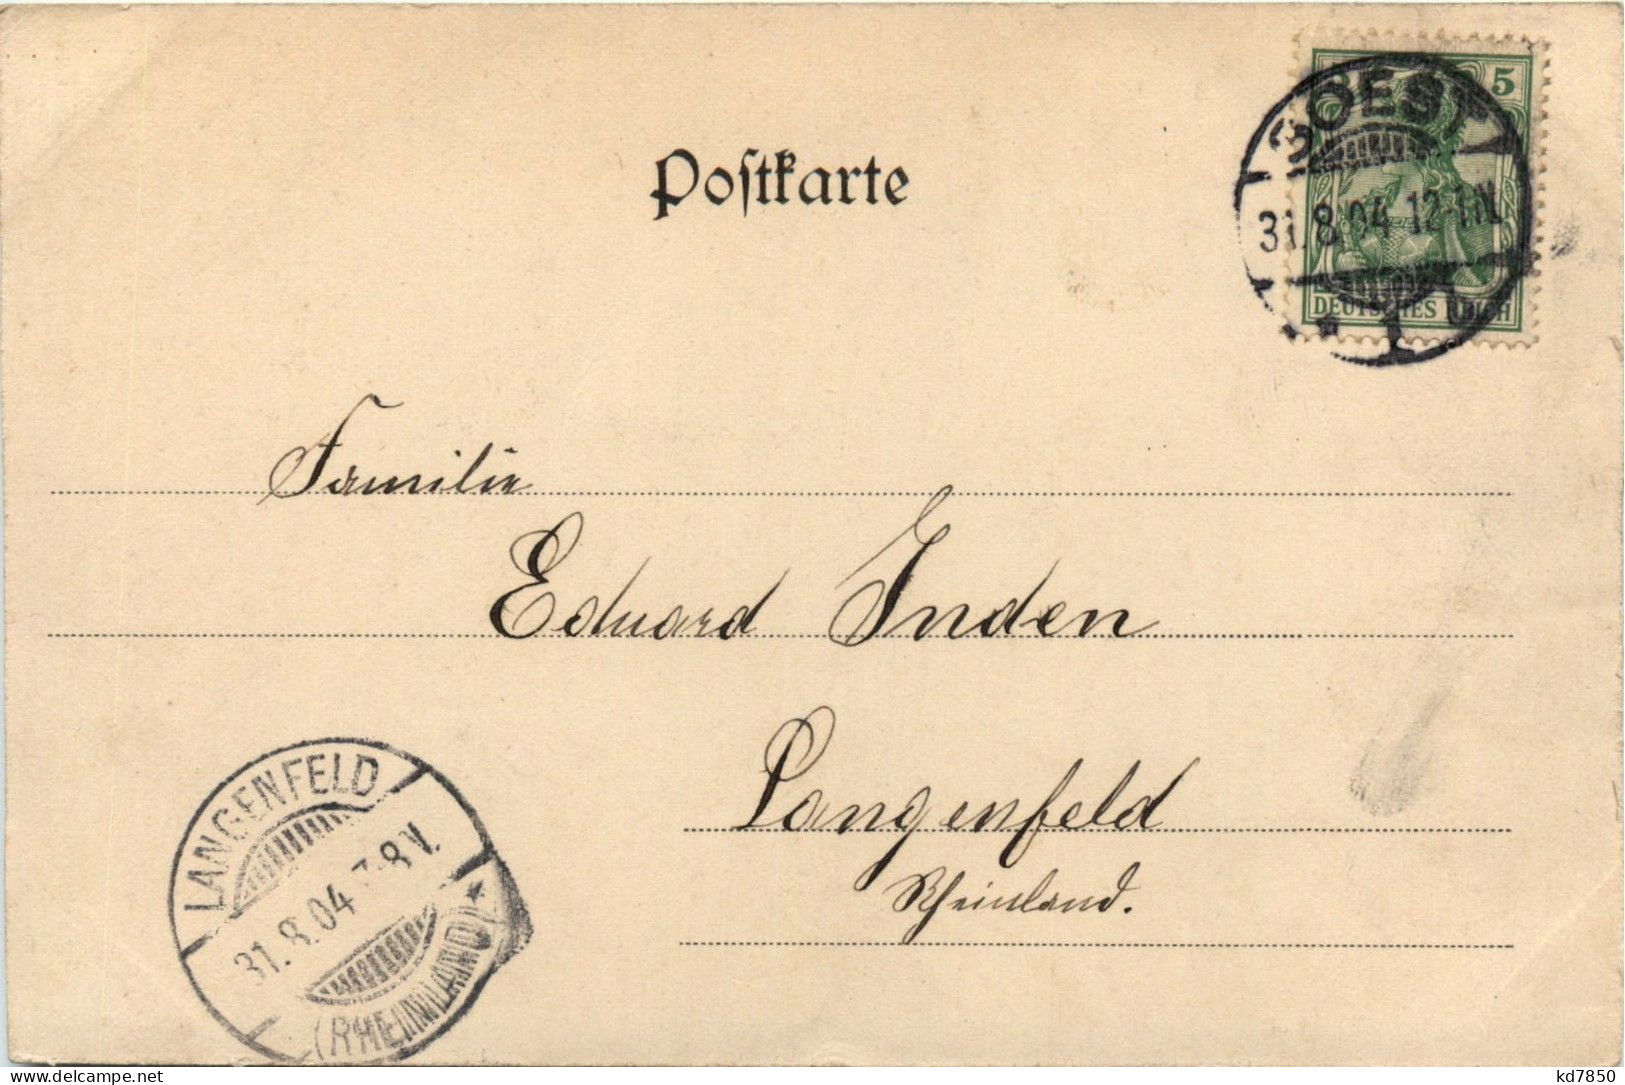 Postkarte
5
SOEST
31.8.04 12-1N.
DEUTSCHES REICH
* 1
Familie
Eduard Inden
Langenfeld
Rheinland.
LANGENFELD
31.8.04 7-8V.
(RHEINLAND) *
www.delcampe.net
kd7850